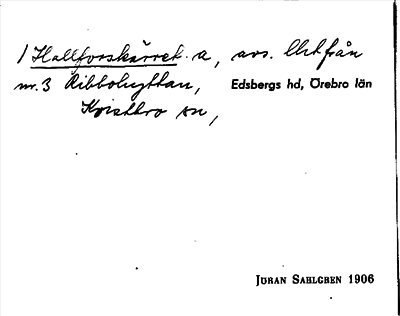 1 Hallforskärret. a, avs. litt från
nr. 3 Ribbohyttan, Edsbergs hd, Örebro län
Kvistbro sn,
JÖRAN SAHLGREN 1906